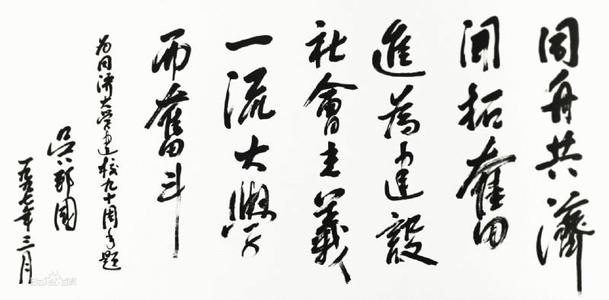 同舟共濟
開拓奮
進為建設
社會主義
一流大學
而奮斗
為同济大学建校九十周年題
吴邦國
一九九七年三月